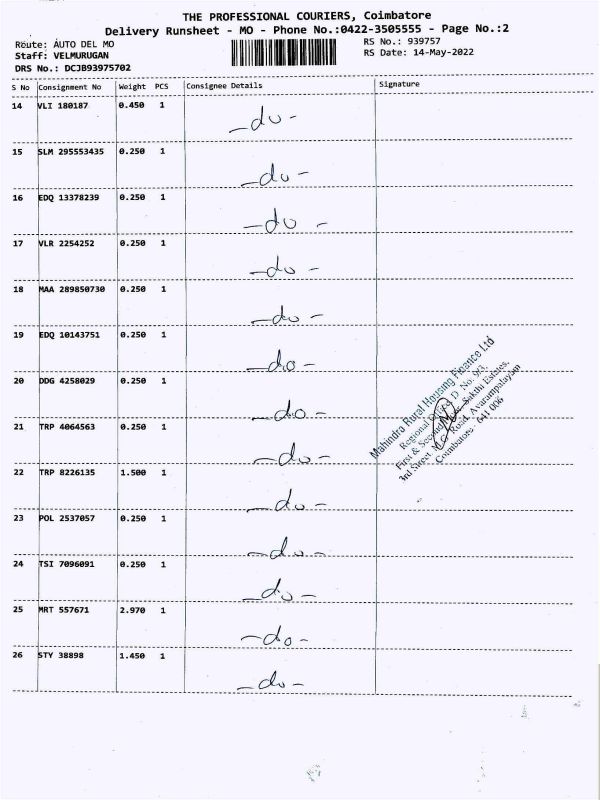 THE PROFESSIONAL COURIERS, Coimbatore
Delivery Runsheet - MO - Phone No.:0422-3505555 - Page No.:2
Route: AUTO DEL MO
RS No.: 939757
Staff: VELMURUGAN
RS Date: 14-May-2022
DRS No.: DCJB93975702
S No Consignment No Weight PCS Consignee Details Signature
14 VLI 180187 0.450 1
-do-
15 SLM 295553435 0.250 1
-do-
16 EDQ 13378239 0.250 1
-do-
17 VLR 2254252 0.250 1
-do-
18 MAA 289850730 0.250 1
-do-
19 EDQ 10143751 0.250 1
-do-
20 DDG 4258029 0.250 1
-do-
21 TRP 4064563 0.250 1
-do-
22 TRP 8226135 1.500 1
-do-
23 POL 2537057 0.250 1
-do-
24 TSI 7096091 0.250 1
-do-
25 MRT 557671 2.970 1
-do-
26 STY 38898 1.450 1
-do-
Mahindra Rural Housing Finance Ltd
Regional D. No. 9/3,
First & Sakthi Estates,
3rd Street, Road, Avarampalayam
Coimbatore - 641 006